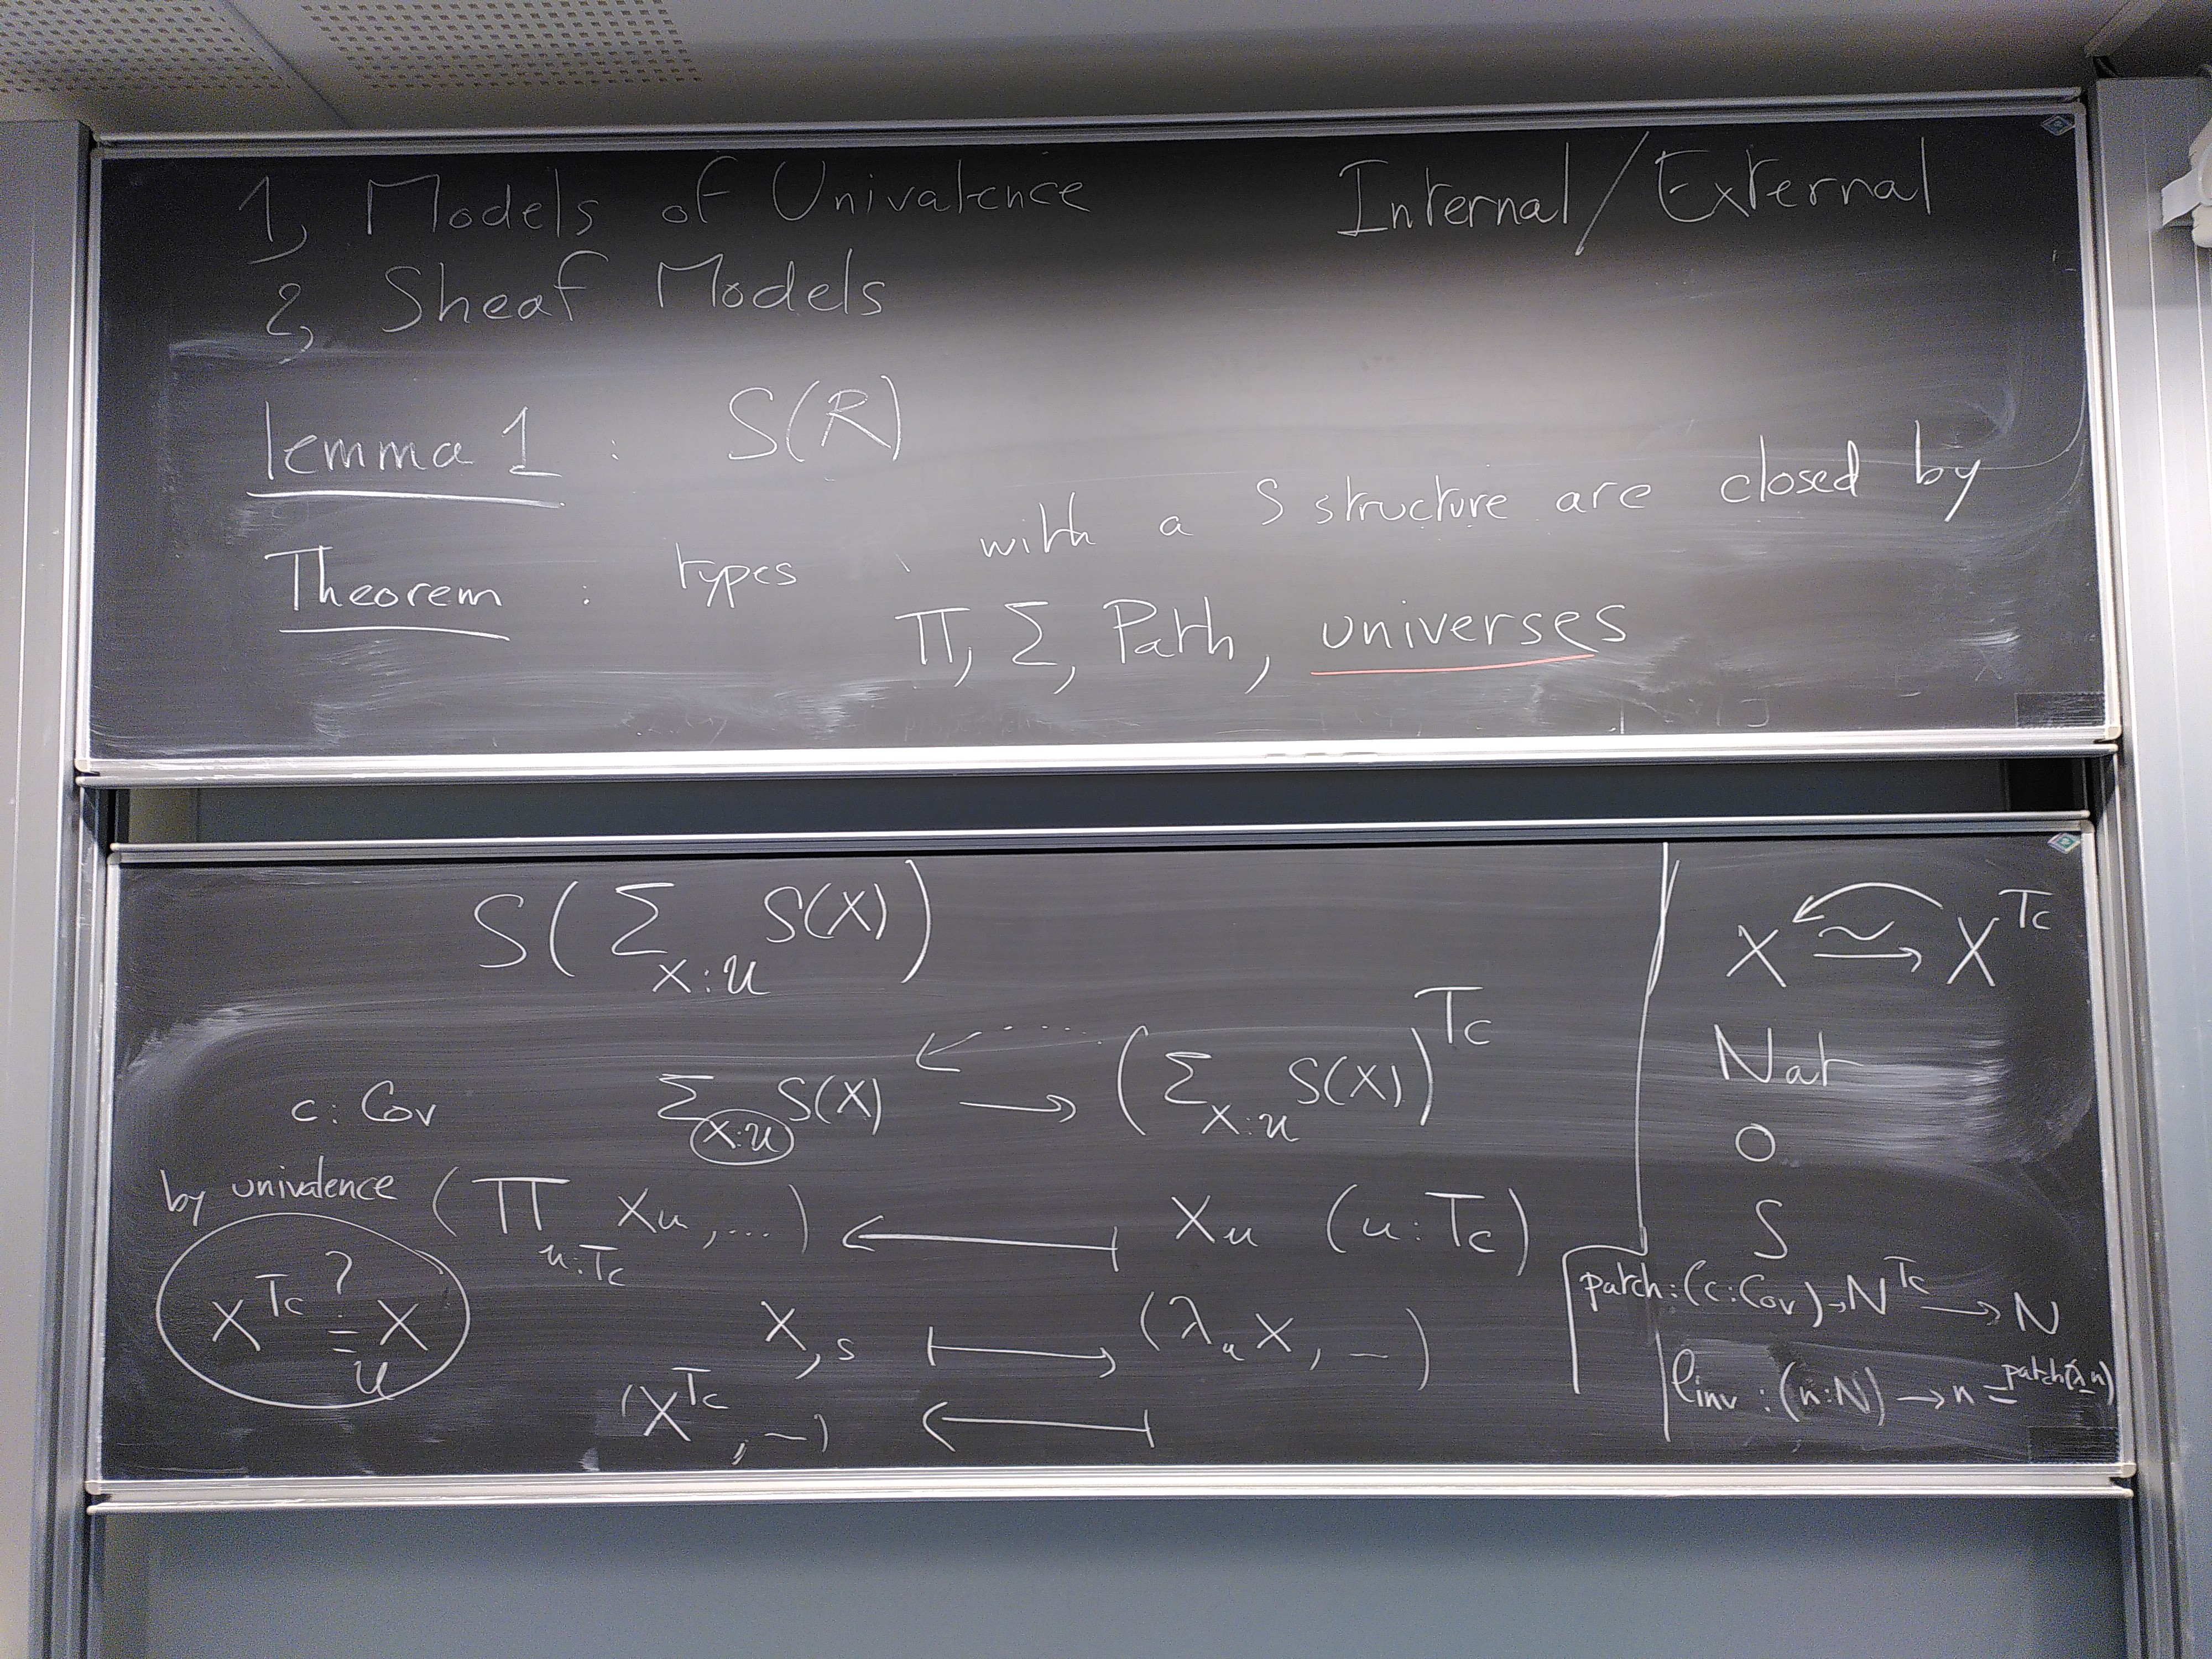 1, Models of Univalence Internal/External
2, Sheaf Models
lemma 1 : S(R)
Theorem : types with a S structure are closed by
Π, Σ, Path, universes
S(Σ_{X:U} S(X))
c : Cov Σ_{X:U} S(X) → (Σ_{X:U} S(X))^{Tc}
by univalence (Π_{u:Tc} Xu, ...) ↤ Xu (u:Tc)
X^{Tc} =_U^? X
X, s ↦ (λ_u X, –)
(X^{Tc}, –) ↤
X ≃ X^{Tc}
Nat
O
S
patch : (c:Cov) → N^{Tc} → N
linv : (n:N) → n = patch(λ_n)